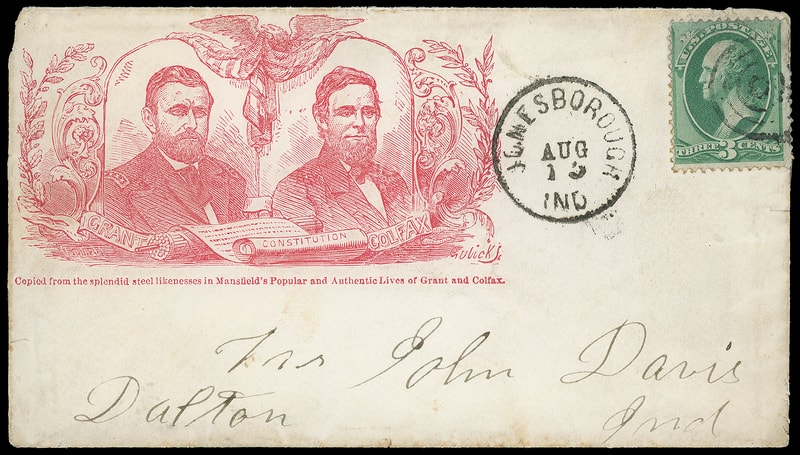 GRANT
CONSTITUTION
COLFAX
Copied from the splendid steel likenesses in Mansfield's Popular and Authentic Lives of Grant and Colfax.
JONESBOROUGH
AUG
IND
U.S. POSTAGE
THREE 3 CENTS
John Davis
Dalton Ind